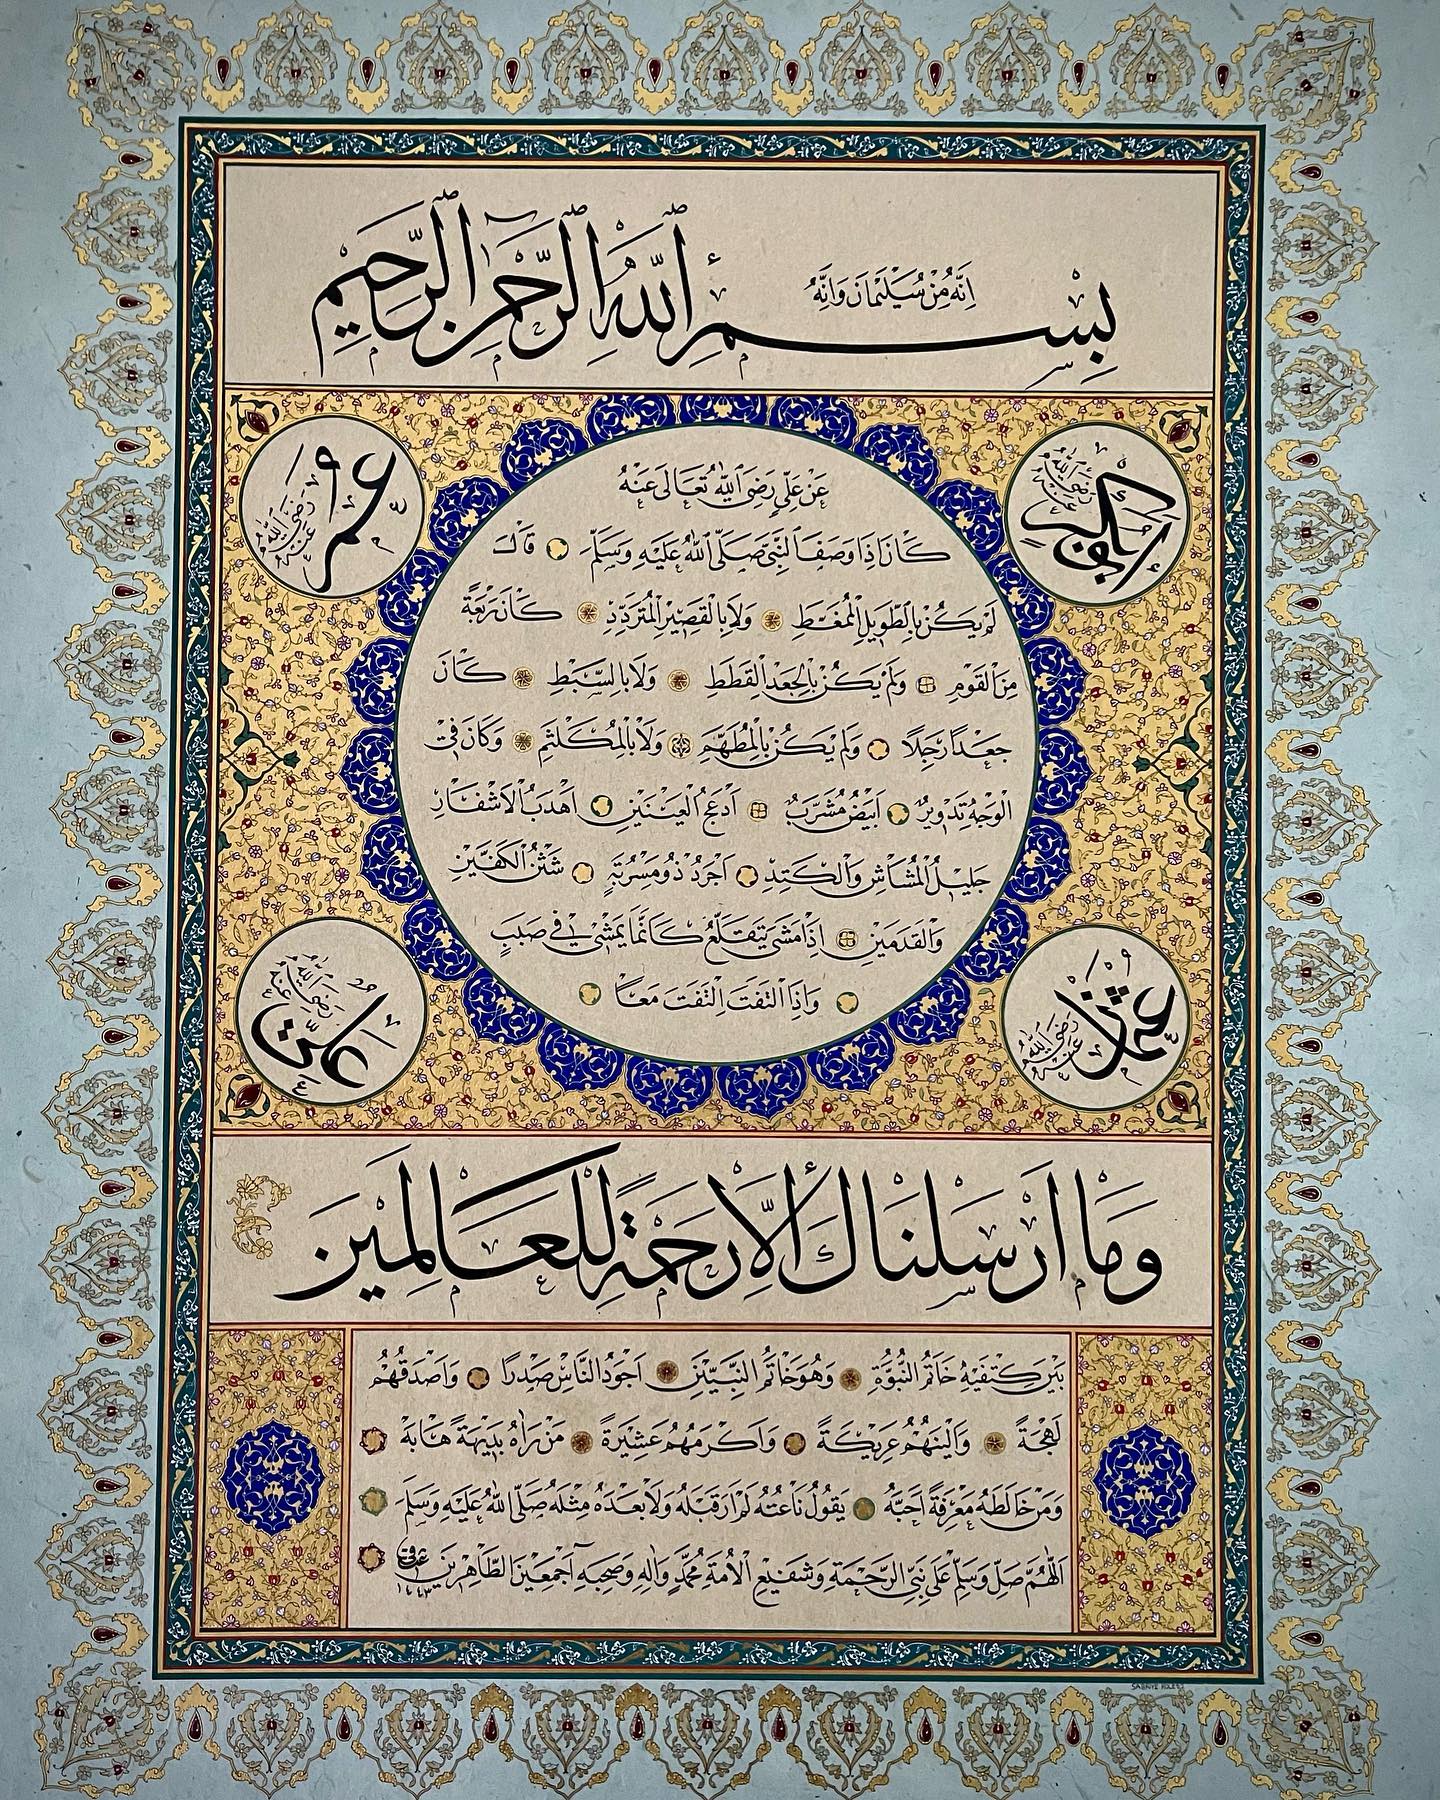 بسم الله الرحمن الرحيم
انه من سليمان وانه
ابوبكر رضي الله عنه
عمر رضي الله عنه
عن علي رضي الله تعالى عنه
كان اذا وصف النبي صلى الله عليه وسلم قال
لم يكن بالطويل الممغط ولا بالقصير المتردد كان ربعة
من القوم ولم يكن بالجعد القطط ولا بالسبط كان
جعدا رجلا ولم يكن بالمطهم ولا بالمكلثم وكان في
الوجه تدوير ابيض مشرب ادعج العينين اهدب الاشفار
جليل المشاش والكتد اجرد ذو مسربة شثن الكفين
والقدمين اذا مشى يتقلع كانما يمشي في صبب
واذا التفت التفت معا
عثمان رضي الله عنه
علي رضي الله عنه
وما ارسلناك الا رحمة للعالمين
بين كتفيه خاتم النبوة وهو خاتم النبيين اجود الناس صدرا واصدقهم
لهجة والينهم عريكة واكرمهم عشيرة من راه بديهة هابه
ومن خالطه معرفة احبه يقول ناعته لم ار قبله ولا بعده مثله صلى الله عليه وسلم
اللهم صل وسلم على نبي الرحمة وشفيع الامة محمد واله وصحبه اجمعين الطاهرين
١٤٤٣
SABRIYE